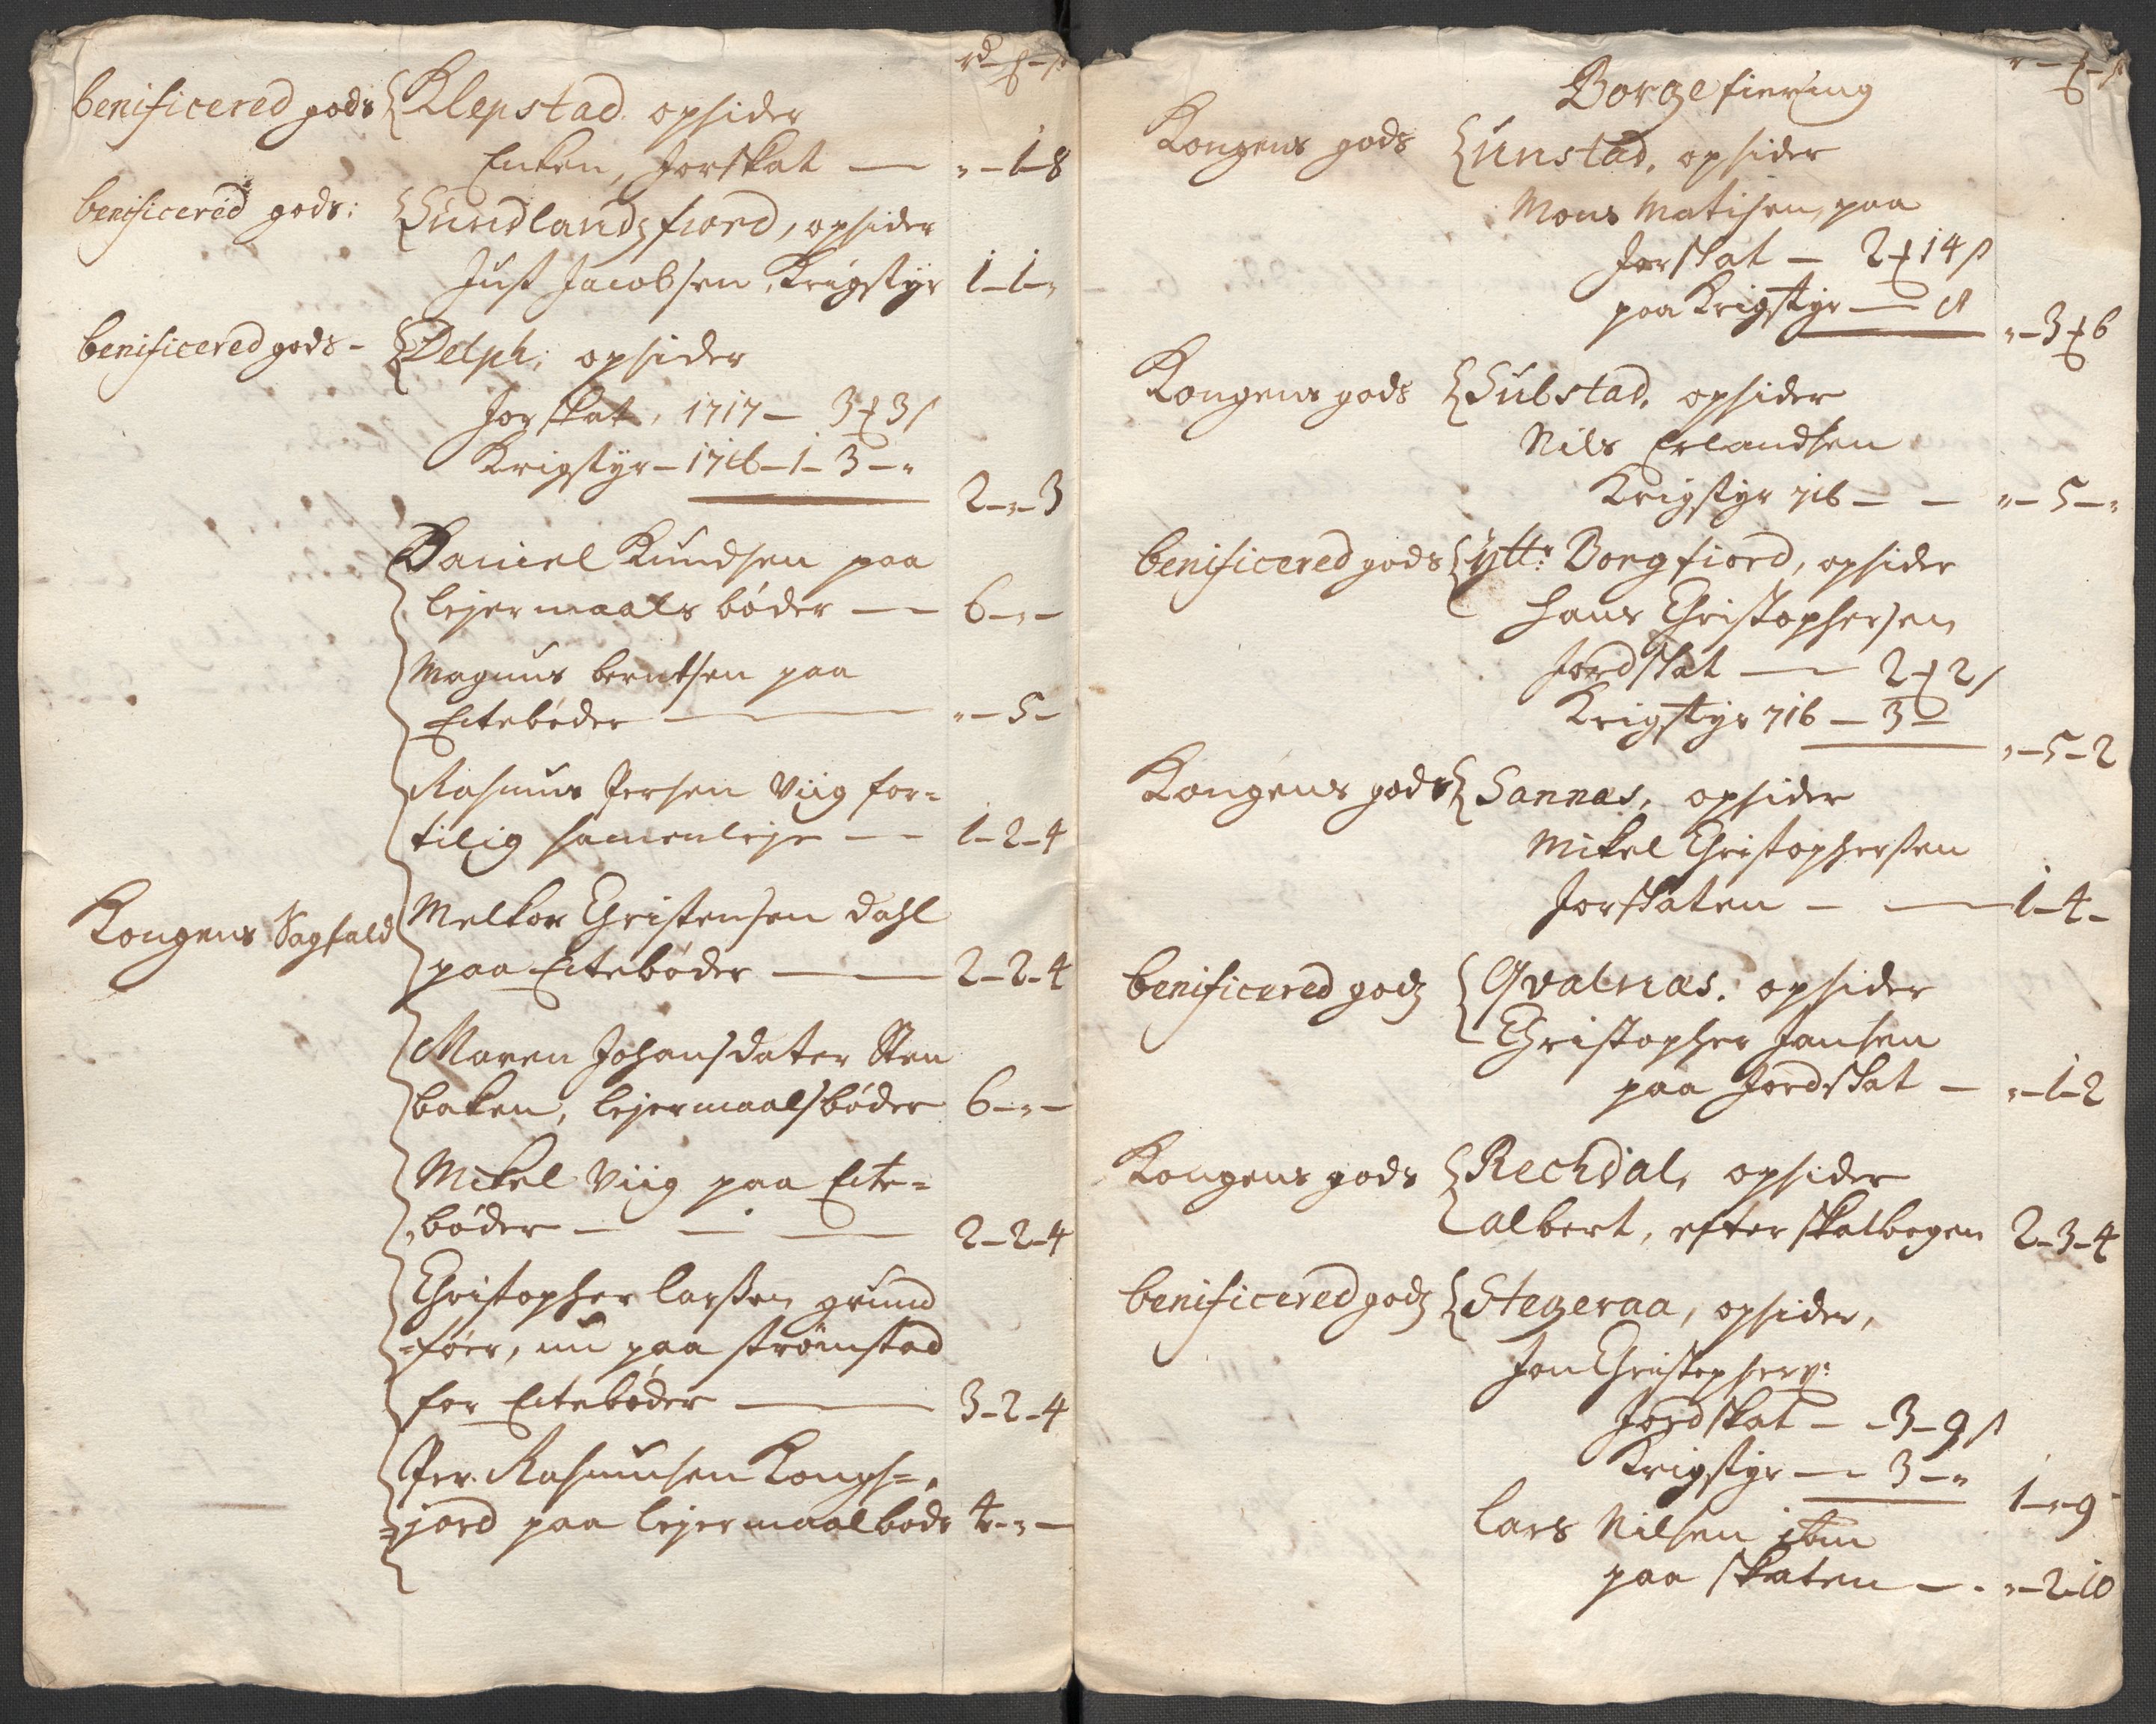 benificered gods Klepstad opsider
Enken, Jorskat — " — 1 - 8
benificered gods: Sundlandz fiord, opsider
Just Jacobsen, Krigstyr 1 - 1 - "
benificered gods - Delph: opsider
Jorskat, 1717 — 3 - 3 s
Krigstyr — 1716 — 1 - 3 — "
2 - " - 3
Daniel Kundsen paa
lejermaals bøder — 6 - " -
Magnus berntsen paa
Eitebøder — " — 5 -
Rasmus Persen Viig for=
tilig samenleje — 1 - 2 - 4
Kongens Sagfald Melkor Christensen Dahl
paa Eitebøder — 2 - 2 - 4
Maren Johansdater Sten
baken, lejermaalsbøder 6 - " -
Mikel Viig paa Eite=
bøder — — — 2 - 2 - 4
Christopher larssen grund
=føer, nu paa strømstad
for Eitebøder — 3 - 2 - 4
Per Rasmusen Kongs=
=jord paa lejermaalbøde 4 - " -
Borge fiering
Kongens gods Unstad, opsider
Mons Matisen, paa
Jorskat — 2 14 s
paa Krigstyr —
" — 3 - 6
Kongens gods Substad, opsider
Nils Erlandsen
Krigstyr 716 — — " — 5 — "
benificered gods ytt: Borgfiord, opsider
Hans Christophersen
Jordskat — 2 - 2 s
Krigstyr 716 — 3 —
" — 5 - 2
Kongens gods Sannæs, opsider
Mikel Christophersen
Jorskaten — — 1 - 4 -
benificered godz Qvalnæs. opsider
Christopher Jansen
paa Jordskat — " — 1 - 2
Kongens gods Rechdal, opsider
albert, efter skatbogen 2 - 3 - 4
benificered godz Stegeraa, opsider,
Jon Christophers:
Jordskat — - 3 - 9 s
Krigstyr — 3 — "
1 - " - 9
Lars Nilsen ibm
paa skaten — . " — 2 - 10